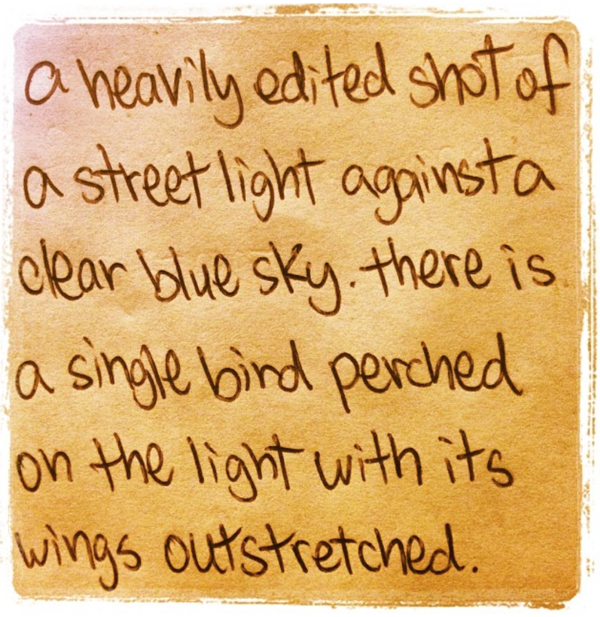 a heavily edited shot of
a street light against a
clear blue sky. there is
a single bird perched
on the light with its
wings outstretched.